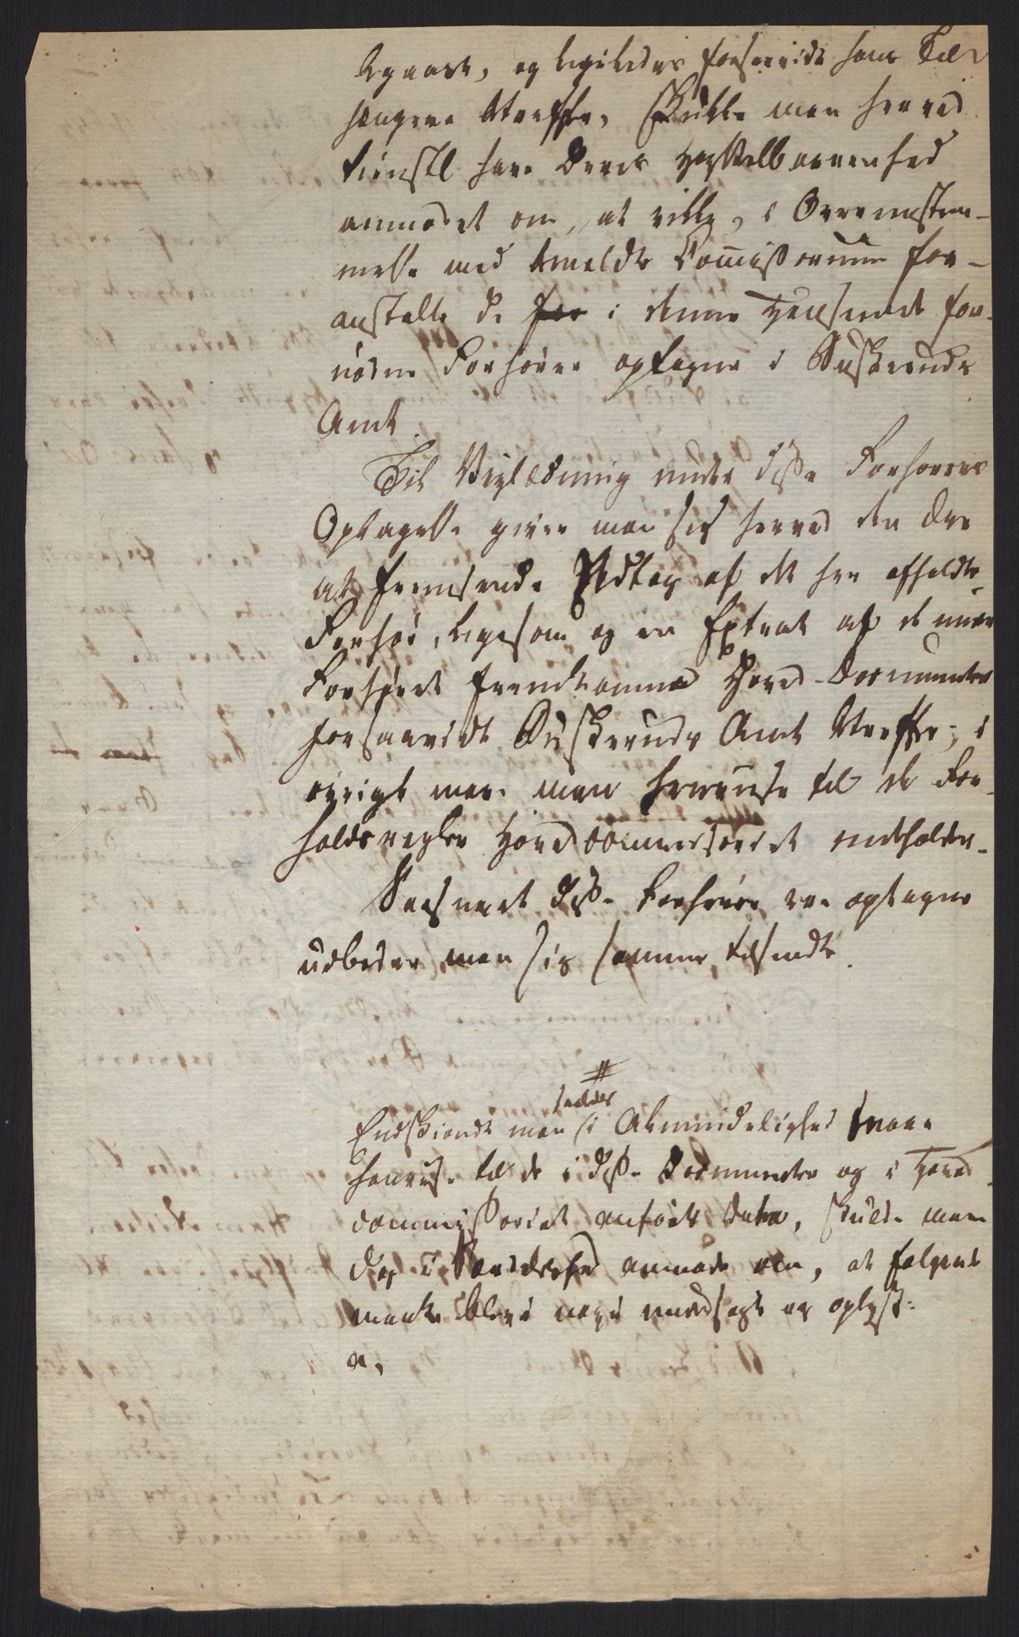 Egaard, og ligeledes forsaavidt hans Til
hængere træffe, skulle man herved
tienstl have Deres Høyvelbaarenhed
anmodet om, at ville, i Overenstem-
melse med Anmeldte Commissorium for-
anstalte de i denne Henseende for-
nødne Forhører optagne i Buskeruds
Amt.
Til Veyledning under disse Forhørers
Optagelse giver man sig herved den Ære
at fremsende Udtog af det her afholdte
Forhør, ligesom og en Extract af de under
Forhøret fremkomne Hoved-Documenter
forsaavidt Buskeruds Amt træffe; i
øvrigt maae man henviise til de For-
holdsregler Hovedcommissoriet indeholder.
Saasnart disse Forhører ere optagne
udbeder man sig samme tilsendte.
#
Endskiøndt man i Almindelighed maae
henvise til de i disse Documenter og i Hoved
commissoriet anførte Data, skulde man
dog i Særdeleshed anmode om, at følgende
maatte blive nøye undersøgt og oplyst:
a,